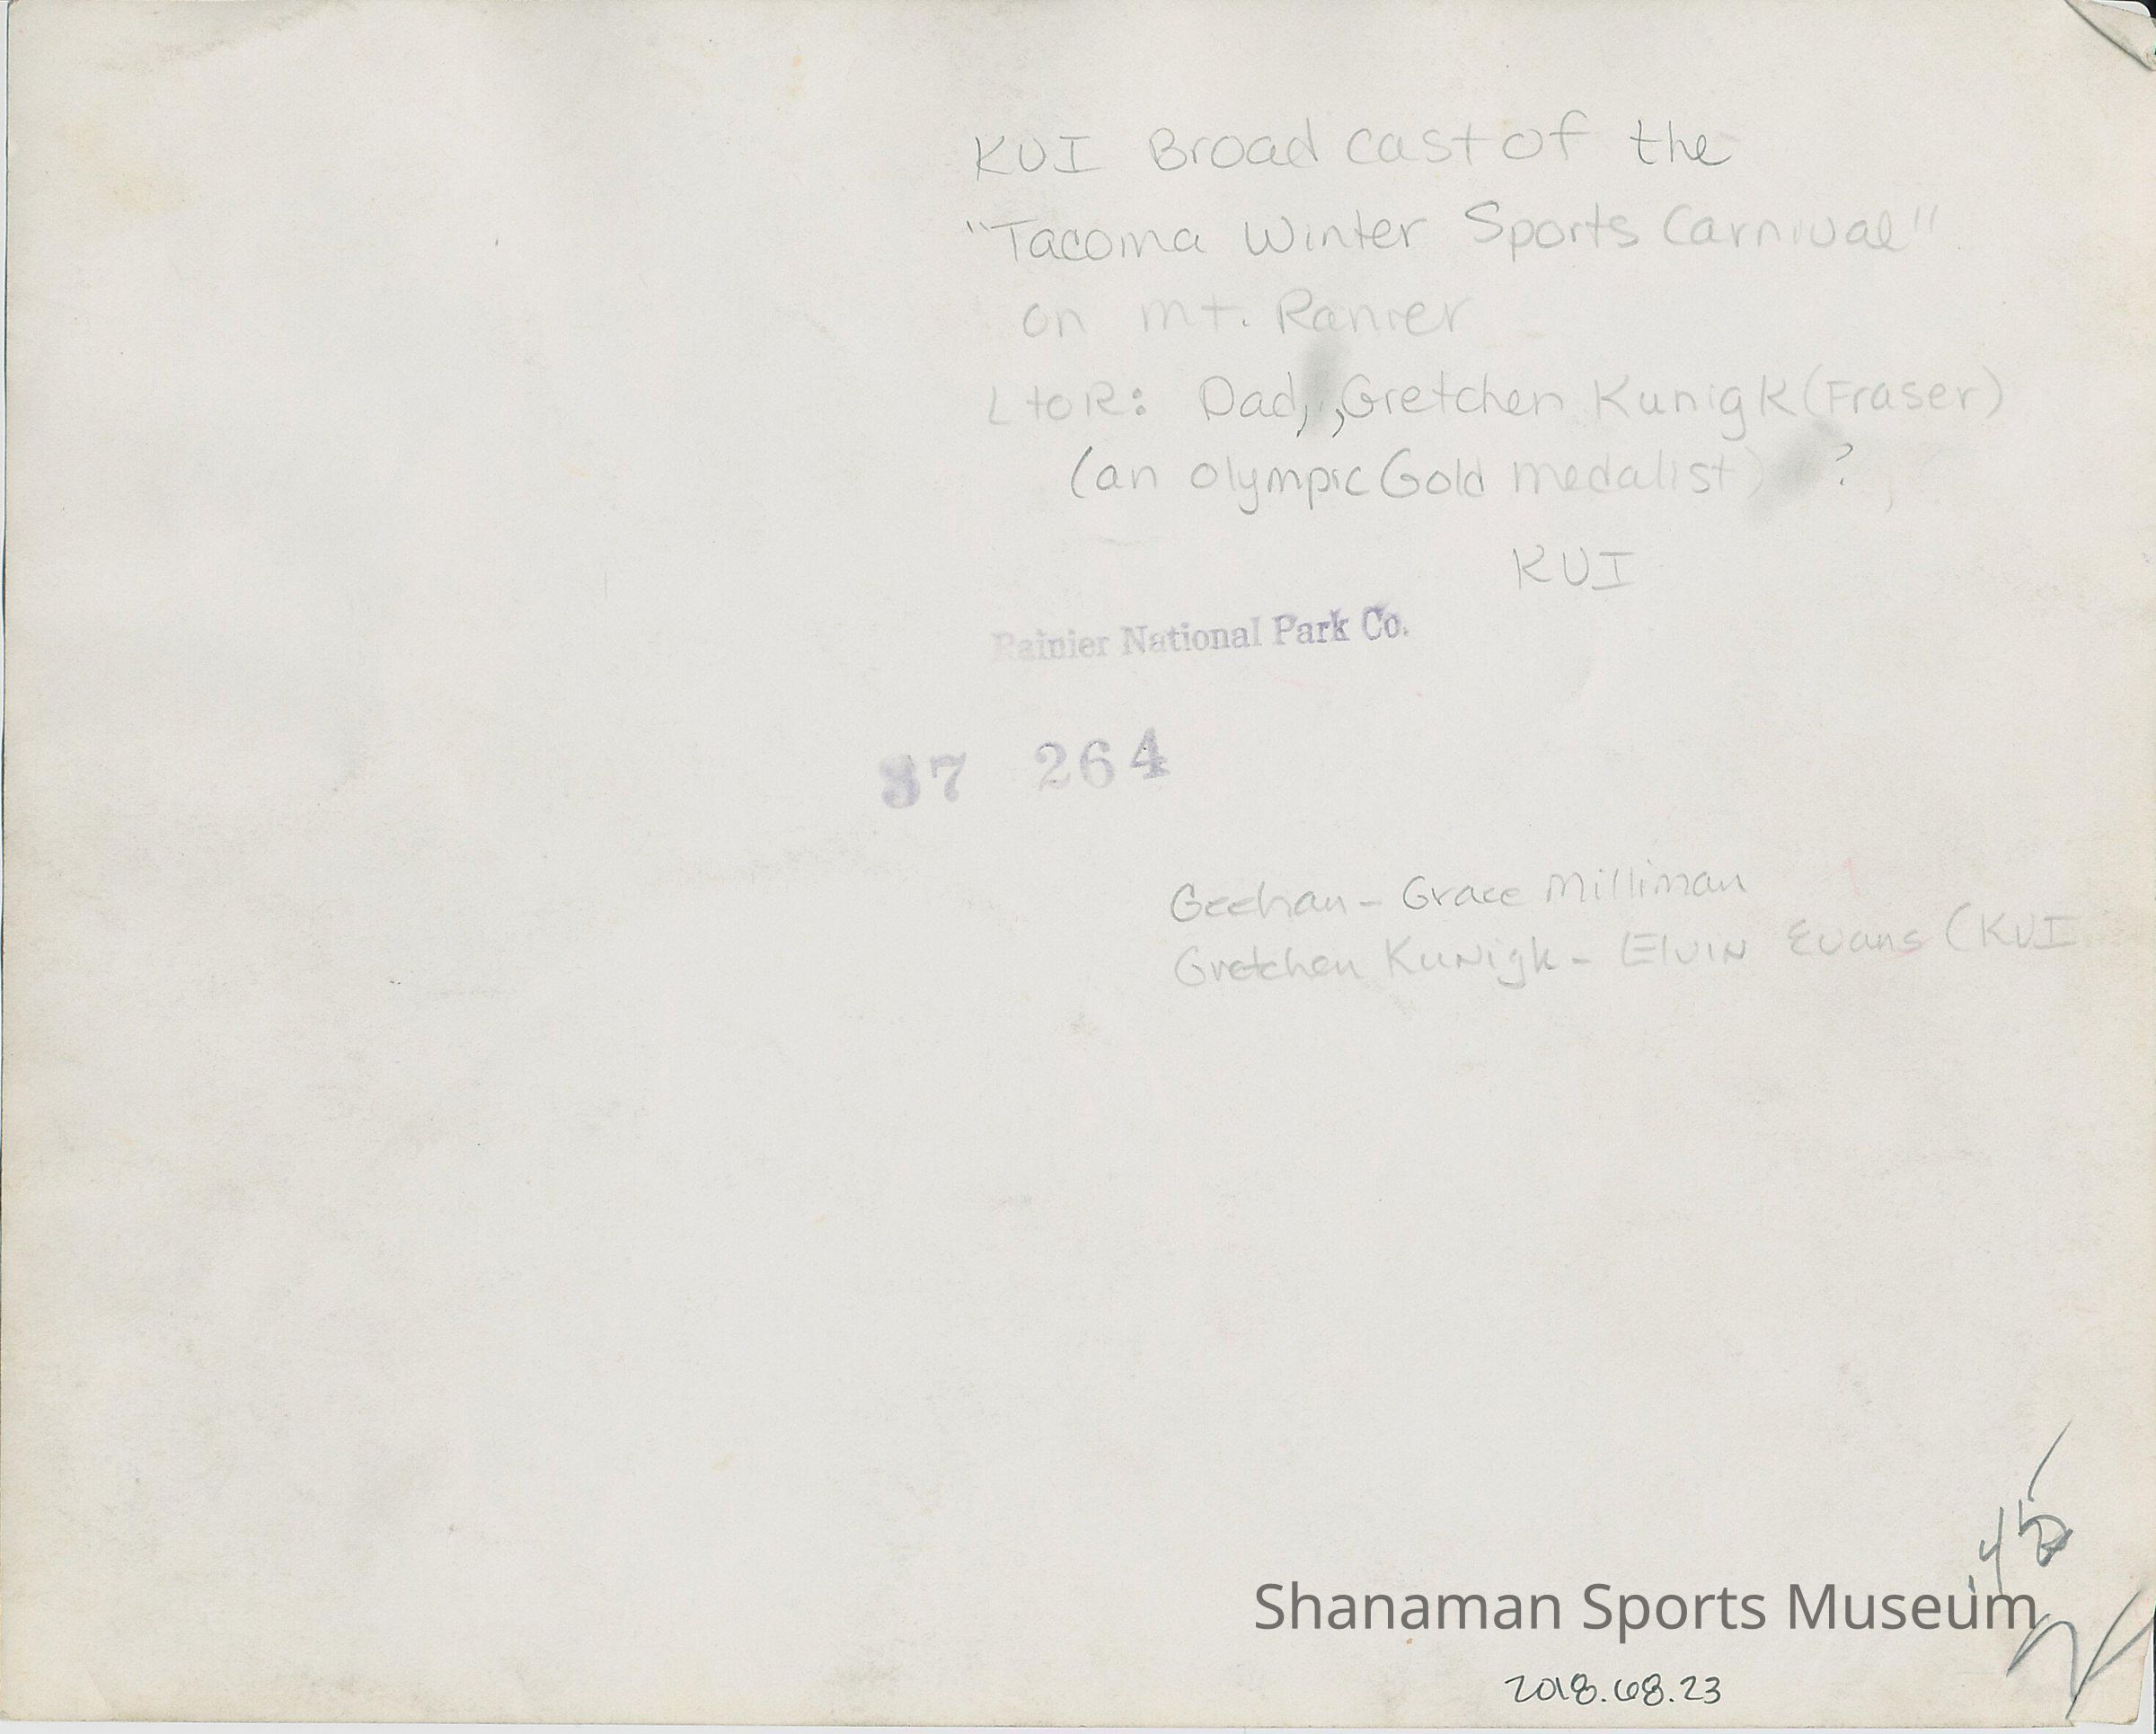 KVI Broadcast of the
"Tacoma Winter Sports Carnival"
on mt. Ranier
L to R: Dad, , Gretchen Kunigk (Fraser)
(an olympic Gold medalist) ?
KVI
Rainier National Park Co.
37 264
Geehan - Grace Milliman
Gretchen Kunigk - Elvin Evans (KVI
Shanaman Sports Museum
2018.68.23